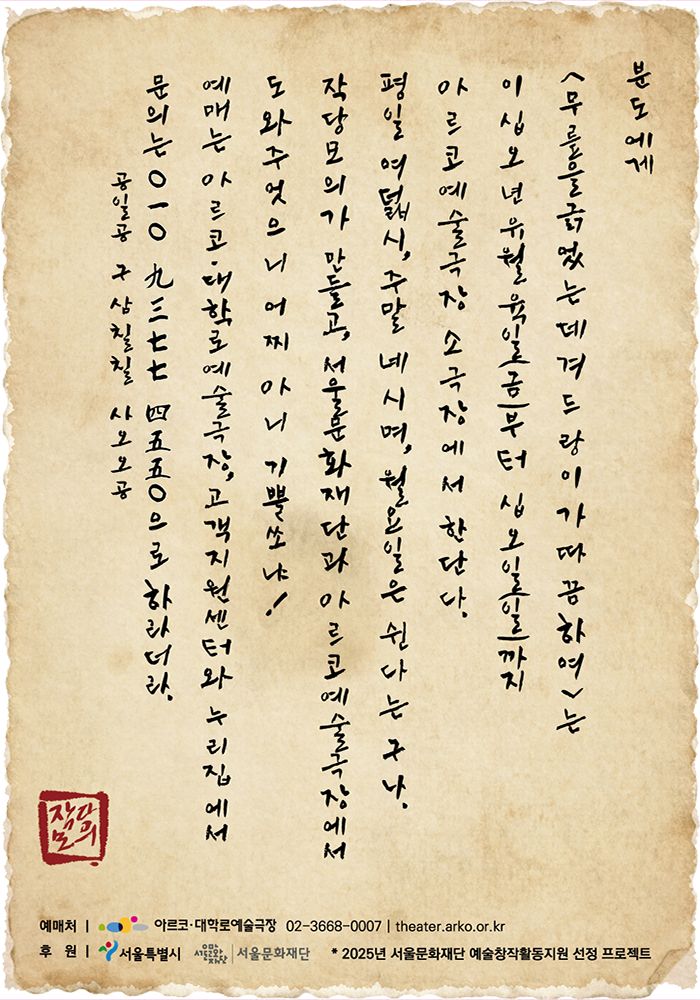 분도에게
<무릎을긁었는데겨드랑이가따끔하여>는
이십오년 유월 육일(금)부터 십오일(일)까지
아르코예술극장 소극장에서 한단다.
평일 여덟시, 주말 네시며, 월요일은 쉰다는구나.
작당모의가 만들고, 서울문화재단과 아르코예술극장에서
도와주었으니 어찌 아니 기쁠쏘냐!
예매는 아르코·대학로예술극장, 고객지원센터와 누리집에서
문의는 〇一〇 九三七七 四五五〇으로 하라더라.
공일공 구삼칠칠 사오오공
작당모의
예매처 | 아르코·대학로예술극장 02-3668-0007 | theater.arko.or.kr
후 원 | 서울특별시 서울문화재단 | 서울문화재단 * 2025년 서울문화재단 예술창작활동지원 선정 프로젝트